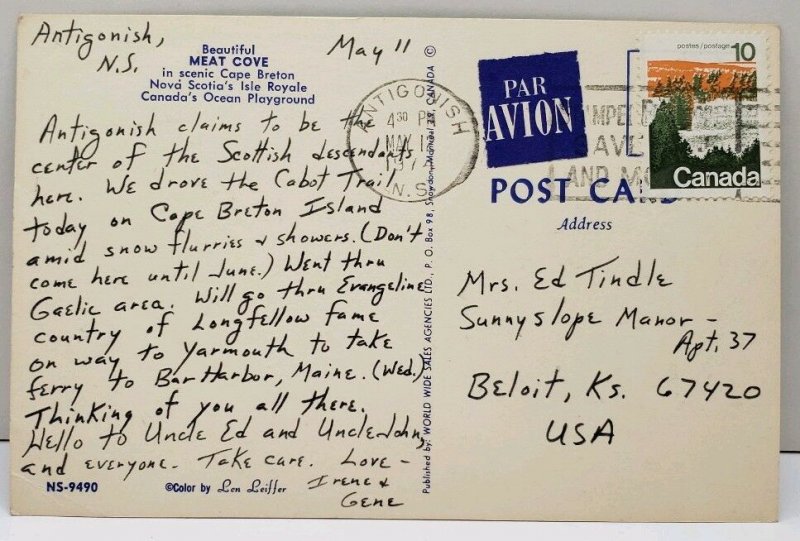 Antigonish,
N.S.
May 11
Beautiful
MEAT COVE
in scenic Cape Breton
Nova Scotia's Isle Royale
Canada's Ocean Playground
Antigonish claims to be the
center of the Scottish descendants
here. We drove the Cabot Trail
today on Cape Breton Island
amid snow flurries & showers. (Don't
come here until June.) Went thru
Gaelic area. Will go thru Evangeline
country of Longfellow fame
on way to Yarmouth to take
ferry to Bar Harbor, Maine. (Wed.)
Thinking of you all there.
Hello to Uncle Ed and Uncle John,
and everyone. Take care. Love –
Irene &
Gene
NS-9490
©Color by Len Leiffer
Published by: WORLD WIDE SALES AGENCIES LTD., P. O. Box 98, Snowdon, Montreal 29, CANADA ©
ANTIGONISH
4 30 P
MAY 1
N.S.
PAR
AVION
LAND
postes/postage 10
Canada
POST CARD
Address
Mrs. Ed Tindle
Sunnyslope Manor –
Apt. 37
Beloit, Ks. 67420
USA